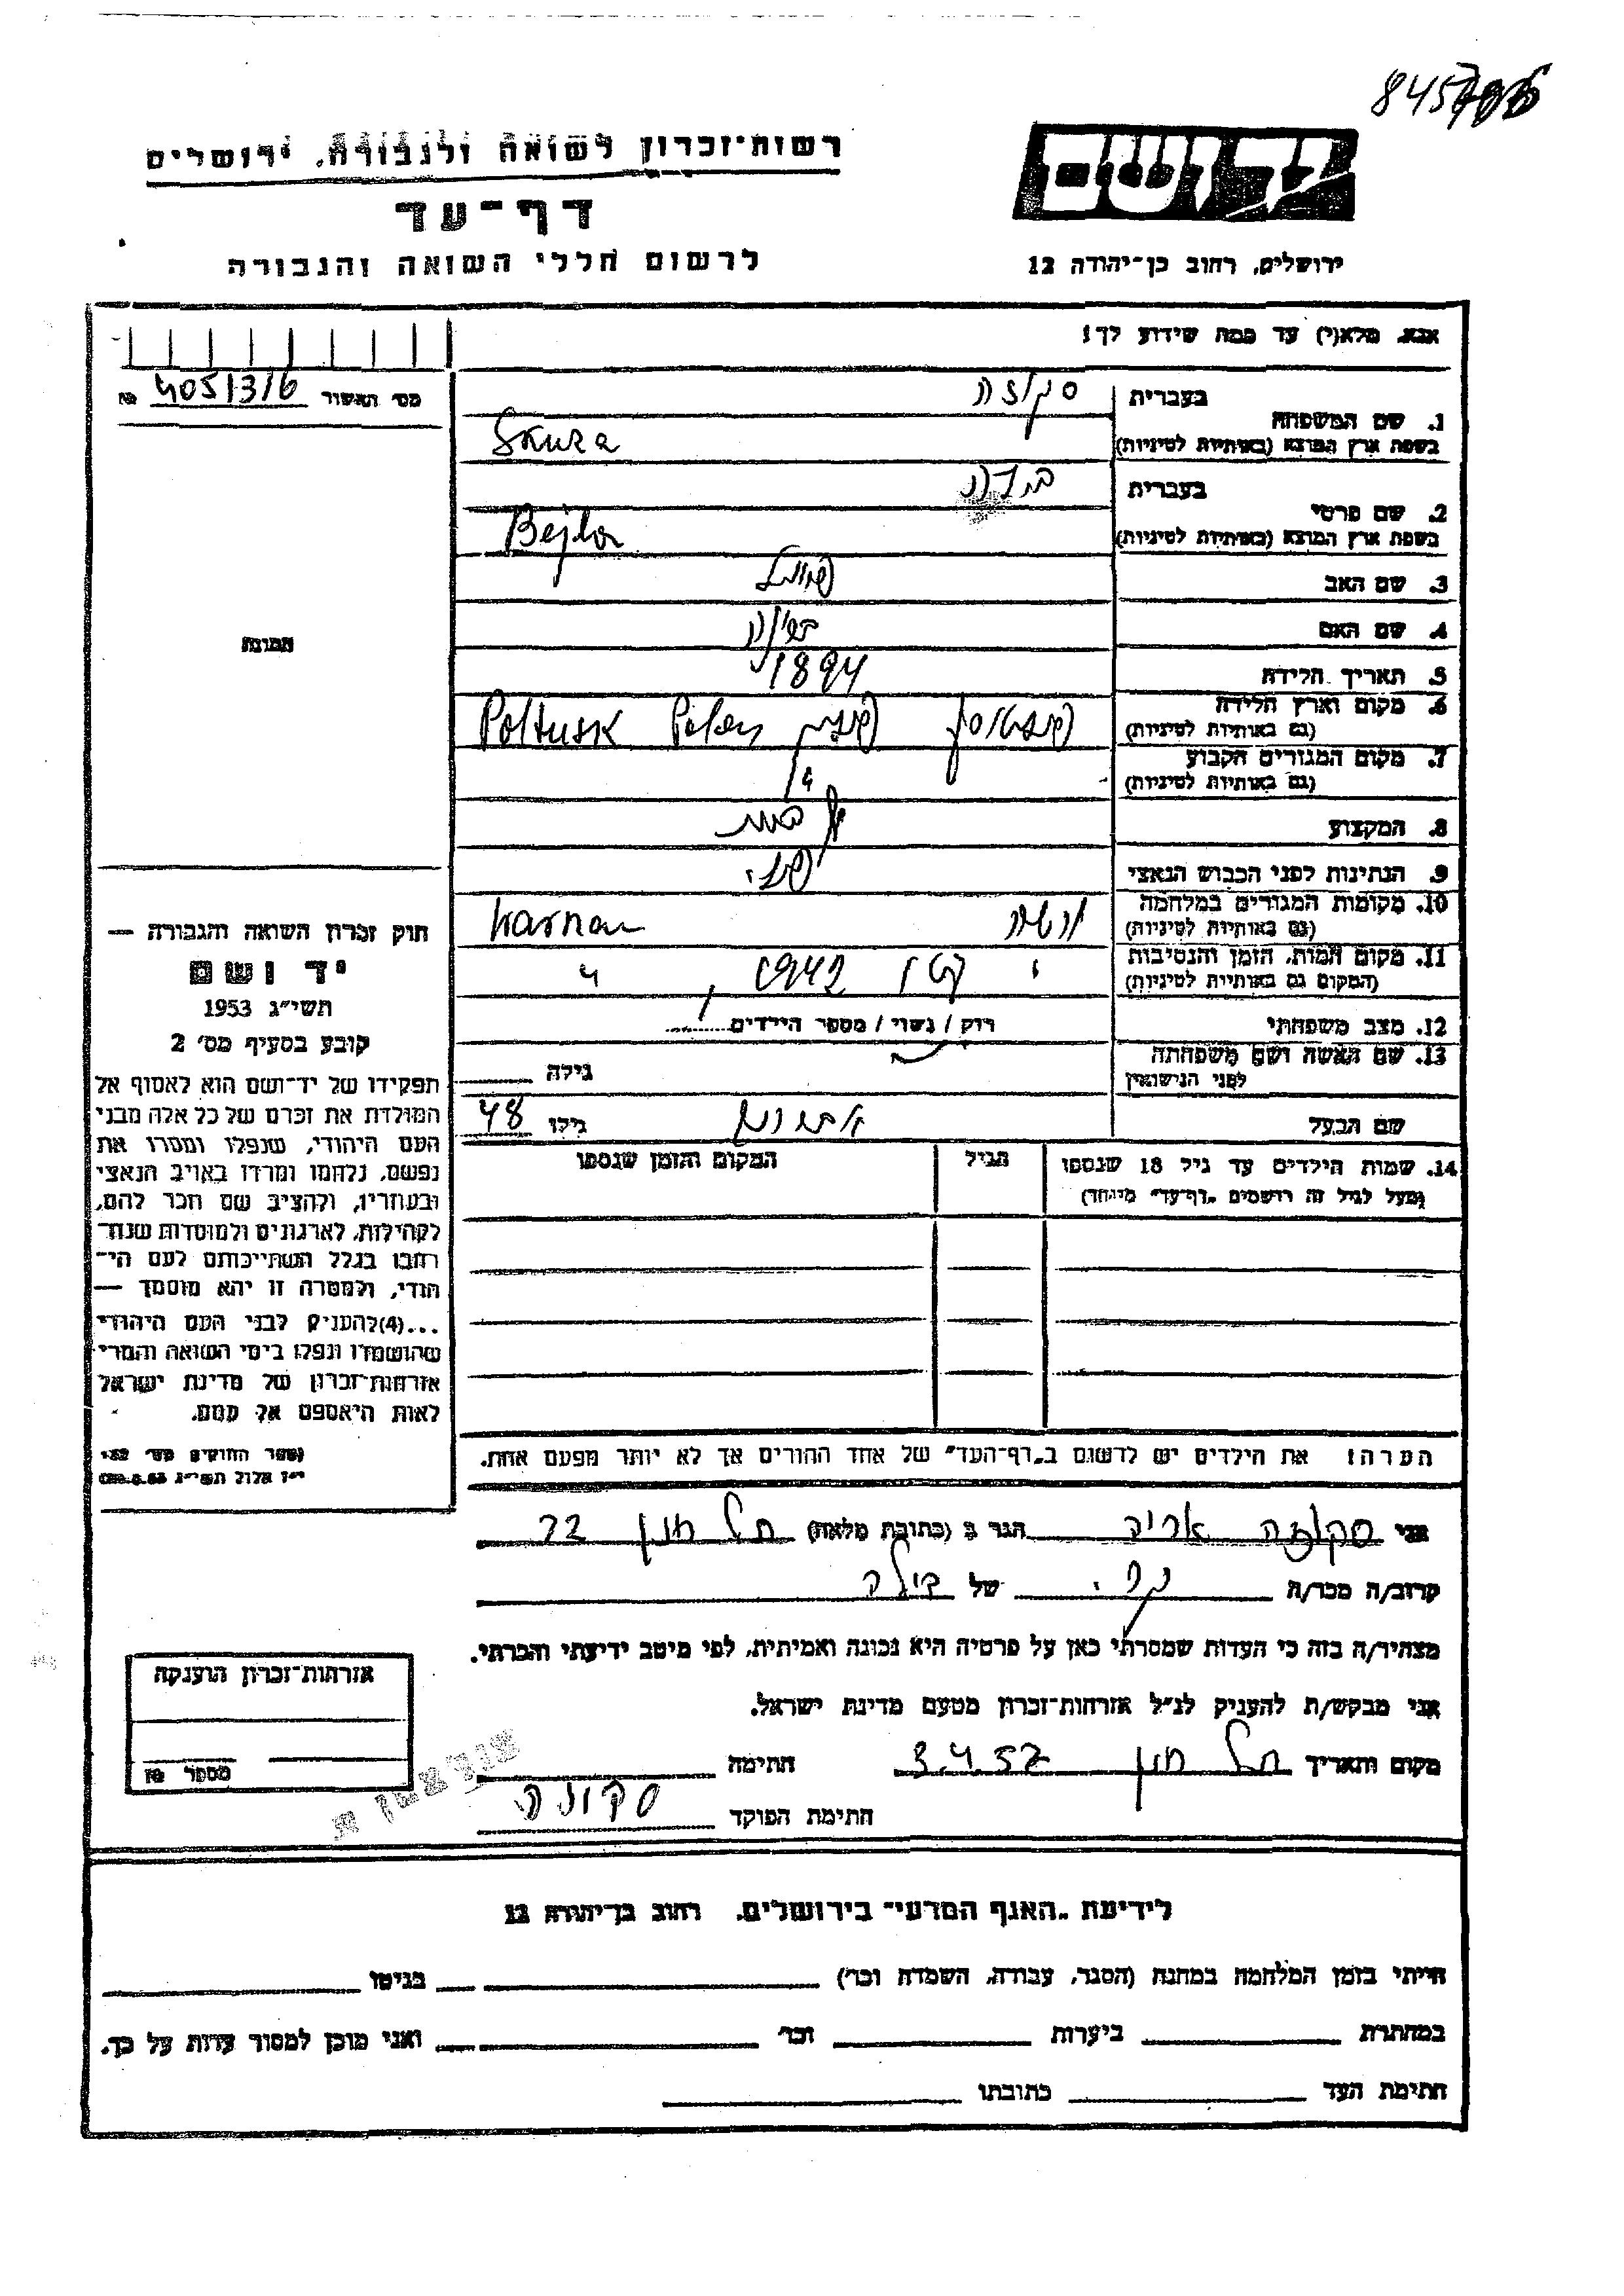 רשות־זכרון לשואה ולגבורה, ירושלים
דף־עד
לרשום חללי השואה והגבורה
ידושם
ירושלים, רחוב בן־יהודה 12
אנא, מלא(י) עד כמה שידוע לך!
מס׳ האשור 405/316 №
1. שם המשפחה בעברית
בשפת ארץ המוצא (באותיות לטיניות) Skura
2. שם פרטי בעברית
בשפת ארץ המוצא (באותיות לטיניות) Bejla
3. שם האב
4. שם האם
5. תאריך הלידה 1894
6. מקום וארץ הלידה Poltusk
(גם באותיות לטיניות)
7. מקום המגורים הקבוע
(גם באותיות לטיניות)
8. המקצוע
9. הנתינות לפני הכבוש הנאצי
10. מקומות המגורים במלחמה
(גם באותיות לטיניות)
11. מקום המות, הזמן והנסיבות 1942
(המקום גם באותיות לטיניות)
12. מצב משפחתי רוק/נשוי/מספר הילדים
13. שם האשה ושם משפחתה
לפני הנישואין גילה
שם הבעל גילו 48
14. שמות הילדים עד גיל 18 שנספו הגיל המקום והזמן שנספו
(מעל לגיל זה רושמים „דף־עד״ מיוחד)
הערה: את הילדים יש לרשום ב„דף־העד״ של אחד ההורים אך לא יותר מפעם אחת.
תמונה
חוק זכרון השואה והגבורה —
יד ושם
תשי״ג 1953
קובע בסעיף מס׳ 2
תפקידו של יד־ושם הוא לאסוף אל
המולדת את זכרם של כל אלה מבני
העם היהודי, שנפלו ומסרו את
נפשם, נלחמו ומרדו באויב הנאצי
ובעוזריו, ולהציב שם וזכר להם,
לקהילות, לארגונים ולמוסדות שנח־
רבו בגלל השתייכותם לעם הי־
הודי, ולמטרה זו יהא מוסמך —
...(4)להעניק לבני העם היהודי
שהושמדו ונפלו בימי השואה והמרי
אזרחות־זכרון של מדינת ישראל
לאות היאספם אל עמם.
(ספר החוקים מס׳ 132
י״ז אלול תשי״ג 28.8.53)
אני סקוזה אריה הגר ב (כתובת מלאה) תל מונד 22
קרוב/ה מכר/ה של בילה
מצהיר/ה בזה כי העדות שמסרתי כאן על פרטיה היא נכונה ואמיתית, לפי מיטב ידיעתי והכרתי.
אני מבקש/ת להעניק לנ״ל אזרחות־זכרון מטעם מדינת ישראל.
מקום ותאריך 3.4.57 חתימה
חתימת הפוקד
אזרחות־זכרון הוענקה
מספר №
לידיעת „האגף המדעי״ בירושלים, רחוב בן־יהודה 12
הייתי בזמן המלחמה במחנה (הסגר, עבודה, השמדה וכד׳) בגיטו
במחתרת ביערות וכד׳ ואני מוכן למסור עדות על כך.
חתימת העד כתובתו